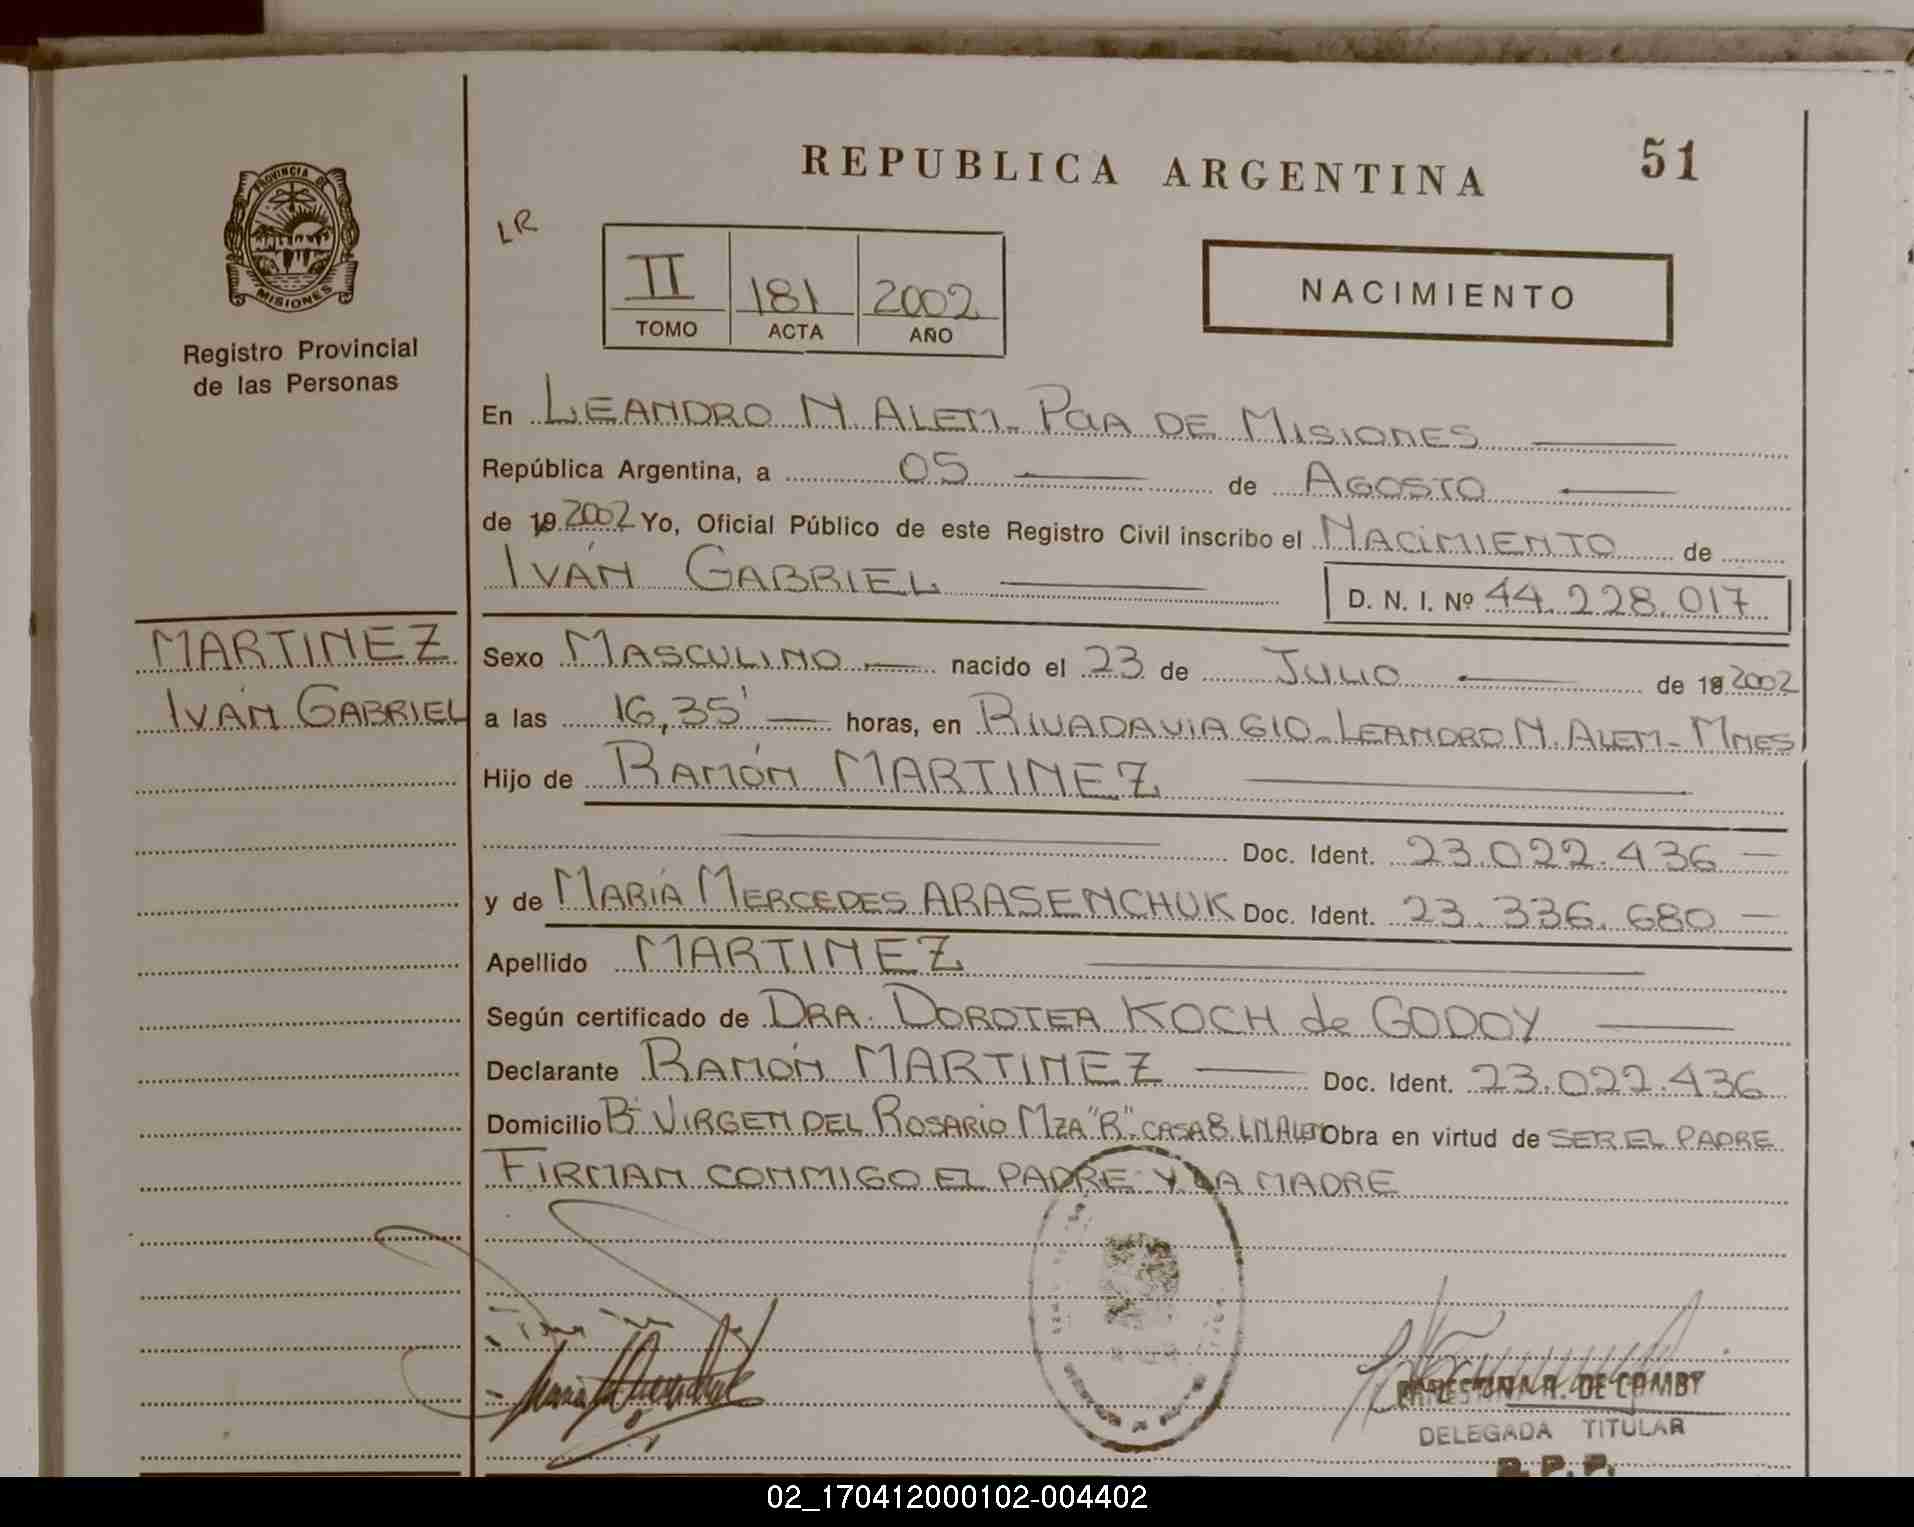 REPUBLICA ARGENTINA
51
PROVINCIA DE
MISIONES
Registro Provincial
de las Personas
LR
II 181 2002
TOMO ACTA AÑO
NACIMIENTO
En LEANDRO N. ALEM - Pcia DE MISIONES
República Argentina, a 05 de AGOSTO
de 19 2002 Yo, Oficial Público de este Registro Civil inscribo el NACIMIENTO de
IVÁN GABRIEL D. N. I. Nº 44.228.017
MARTINEZ
IVÁN GABRIEL
Sexo MASCULINO nacido el 23 de JULIO de 19 2002
a las 16,35' horas, en RIVADAVIA 610 - LEANDRO N. ALEM - MNES
Hijo de RAMÓN MARTINEZ
Doc. Ident. 23.022.436
y de MARÍA MERCEDES ARASENCHUK Doc. Ident. 23.336.680
Apellido MARTINEZ
Según certificado de DRA. DOROTEA KOCH de GODOY
Declarante RAMÓN MARTINEZ Doc. Ident. 23.022.436
Domicilio Bº VIRGEN DEL ROSARIO MZA "R" CASA 8 LN ALEM Obra en virtud de SER EL PADRE
FIRMAN CONMIGO EL PADRE Y LA MADRE
DE COMBY
DELEGADA TITULAR
R.P.P.
02_170412000102-004402